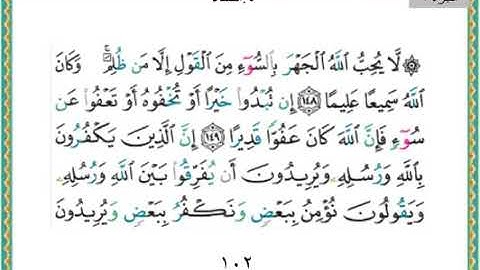 ۞ لَّا يُحِبُّ اللَّهُ الْجَهْرَ بِالسُّوٓءِ مِنَ الْقَوْلِ إِلَّا مَن ظُلِمَ ۚ وَكَانَ
اللَّهُ سَمِيعًا عَلِيمًا ١٤٨ إِن تُبْدُوا خَيْرًا أَوْ تُخْفُوهُ أَوْ تَعْفُوا عَن
سُوٓءٍ فَإِنَّ اللَّهَ كَانَ عَفُوًّا قَدِيرًا ١٤٩ إِنَّ الَّذِينَ يَكْفُرُونَ
بِاللَّهِ وَرُسُلِهِ وَيُرِيدُونَ أَن يُفَرِّقُوا بَيْنَ اللَّهِ وَرُسُلِهِ
وَيَقُولُونَ نُؤْمِنُ بِبَعْضٍ وَنَكْفُرُ بِبَعْضٍ وَيُرِيدُونَ
١٠٢